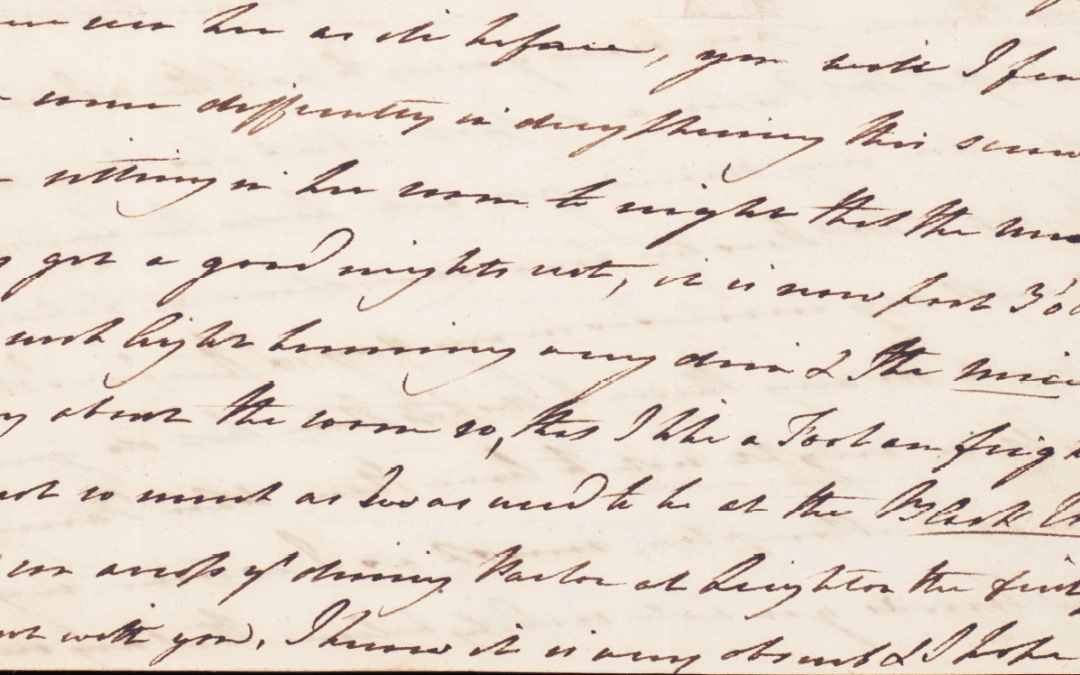 her as she before, you will I fea
some difficulty in decyphering this
sitting in her room to night that the
got a good nights rest, it is now past 3 o'c
rush light burning very dim & the mice
about the room so, that I like a Fool am frig
not so much as I was used to be at the Black
across ye dining Parlor at Leighton the first
with you, I know it is very absurd & I hope